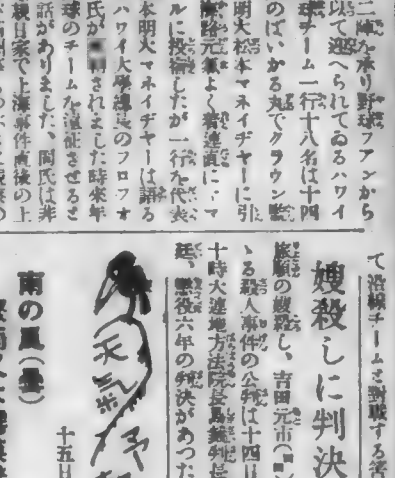 二陣を承り野球フアンから
以て迎へられてゐるハワイ
球チーム一行十八名は十四
のばいかる丸でクラウン
明大松本マネイヂヤーに引
海路元氣よく着連直に、マ
ルに投宿したが一行を代表
本明大マネイヂヤーは語る
ハワイ大學總長のフロフオ
氏が されました時來年
球のチームを遠征させると
話がありました、同氏は非
親日家で上海事件直後の上
て沿線チームと對戰する筈
嫂殺しに判決
旅順の嫂殺し、吉田元市(
ゝる殺人事件の公判は十四日
十時大連地方法院長島裁判長
廷、懲役六年の判決があつた
天氣予
十五日
南の風(曇)